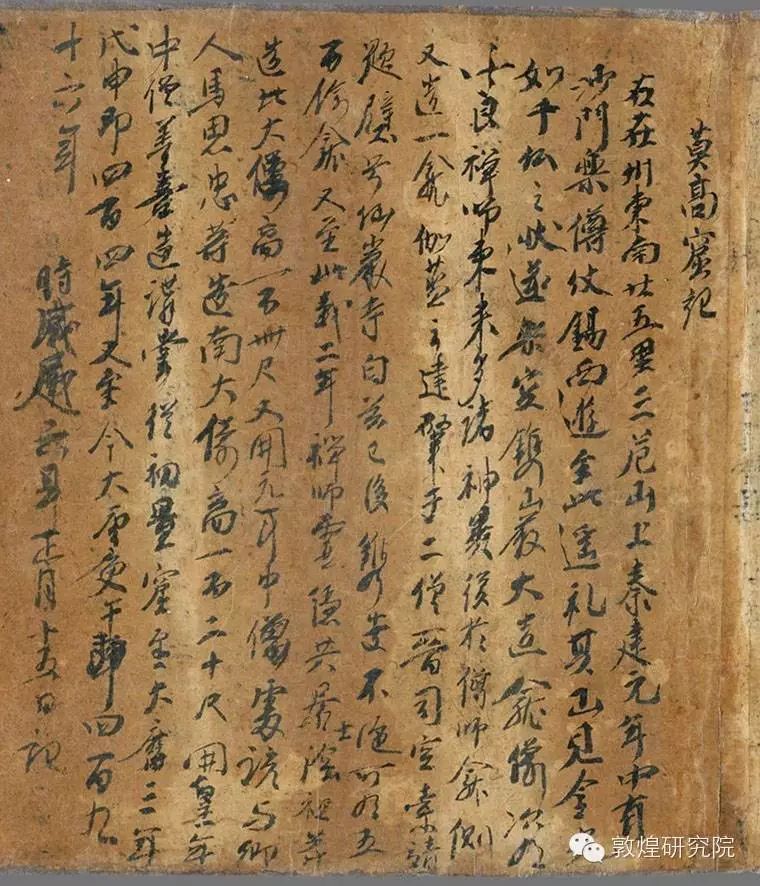 莫高窟記
右在州東南廿五里三危山上秦建元年中有
沙門樂僔仗錫西遊至此遙礼其山見金光
如千仏之狀遂架空鐫山巖大造龕像次有
法良禪師東來多諸神異復於僔師龕側
又造一龕伽藍之建肇于二僧晉司空索靖
題壁号仙巖寺自茲已後鐫造不絕可有五
百餘龕又至延載二年禪師靈隱共居士陰祖等
造北大像高一百卌尺又開元年中僧處諺与鄉
人馬思忠等造南大像高一百二十尺開皇年
中僧善喜造講堂從初置窟至大曆三年
戊申即四百四年又至今大唐庚午即四百九
十六年 時咸通六年正月十五日記
敦煌研究院